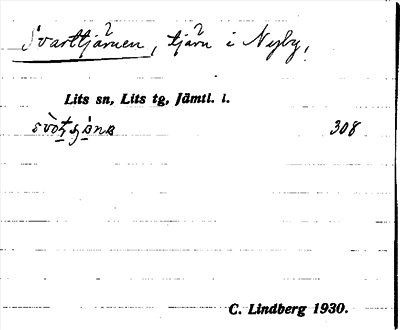 Svarttjärnen, tjärn i Nyby,
Lits sn, Lits tg, Jämtl. l.
308
C. Lindberg 1930.